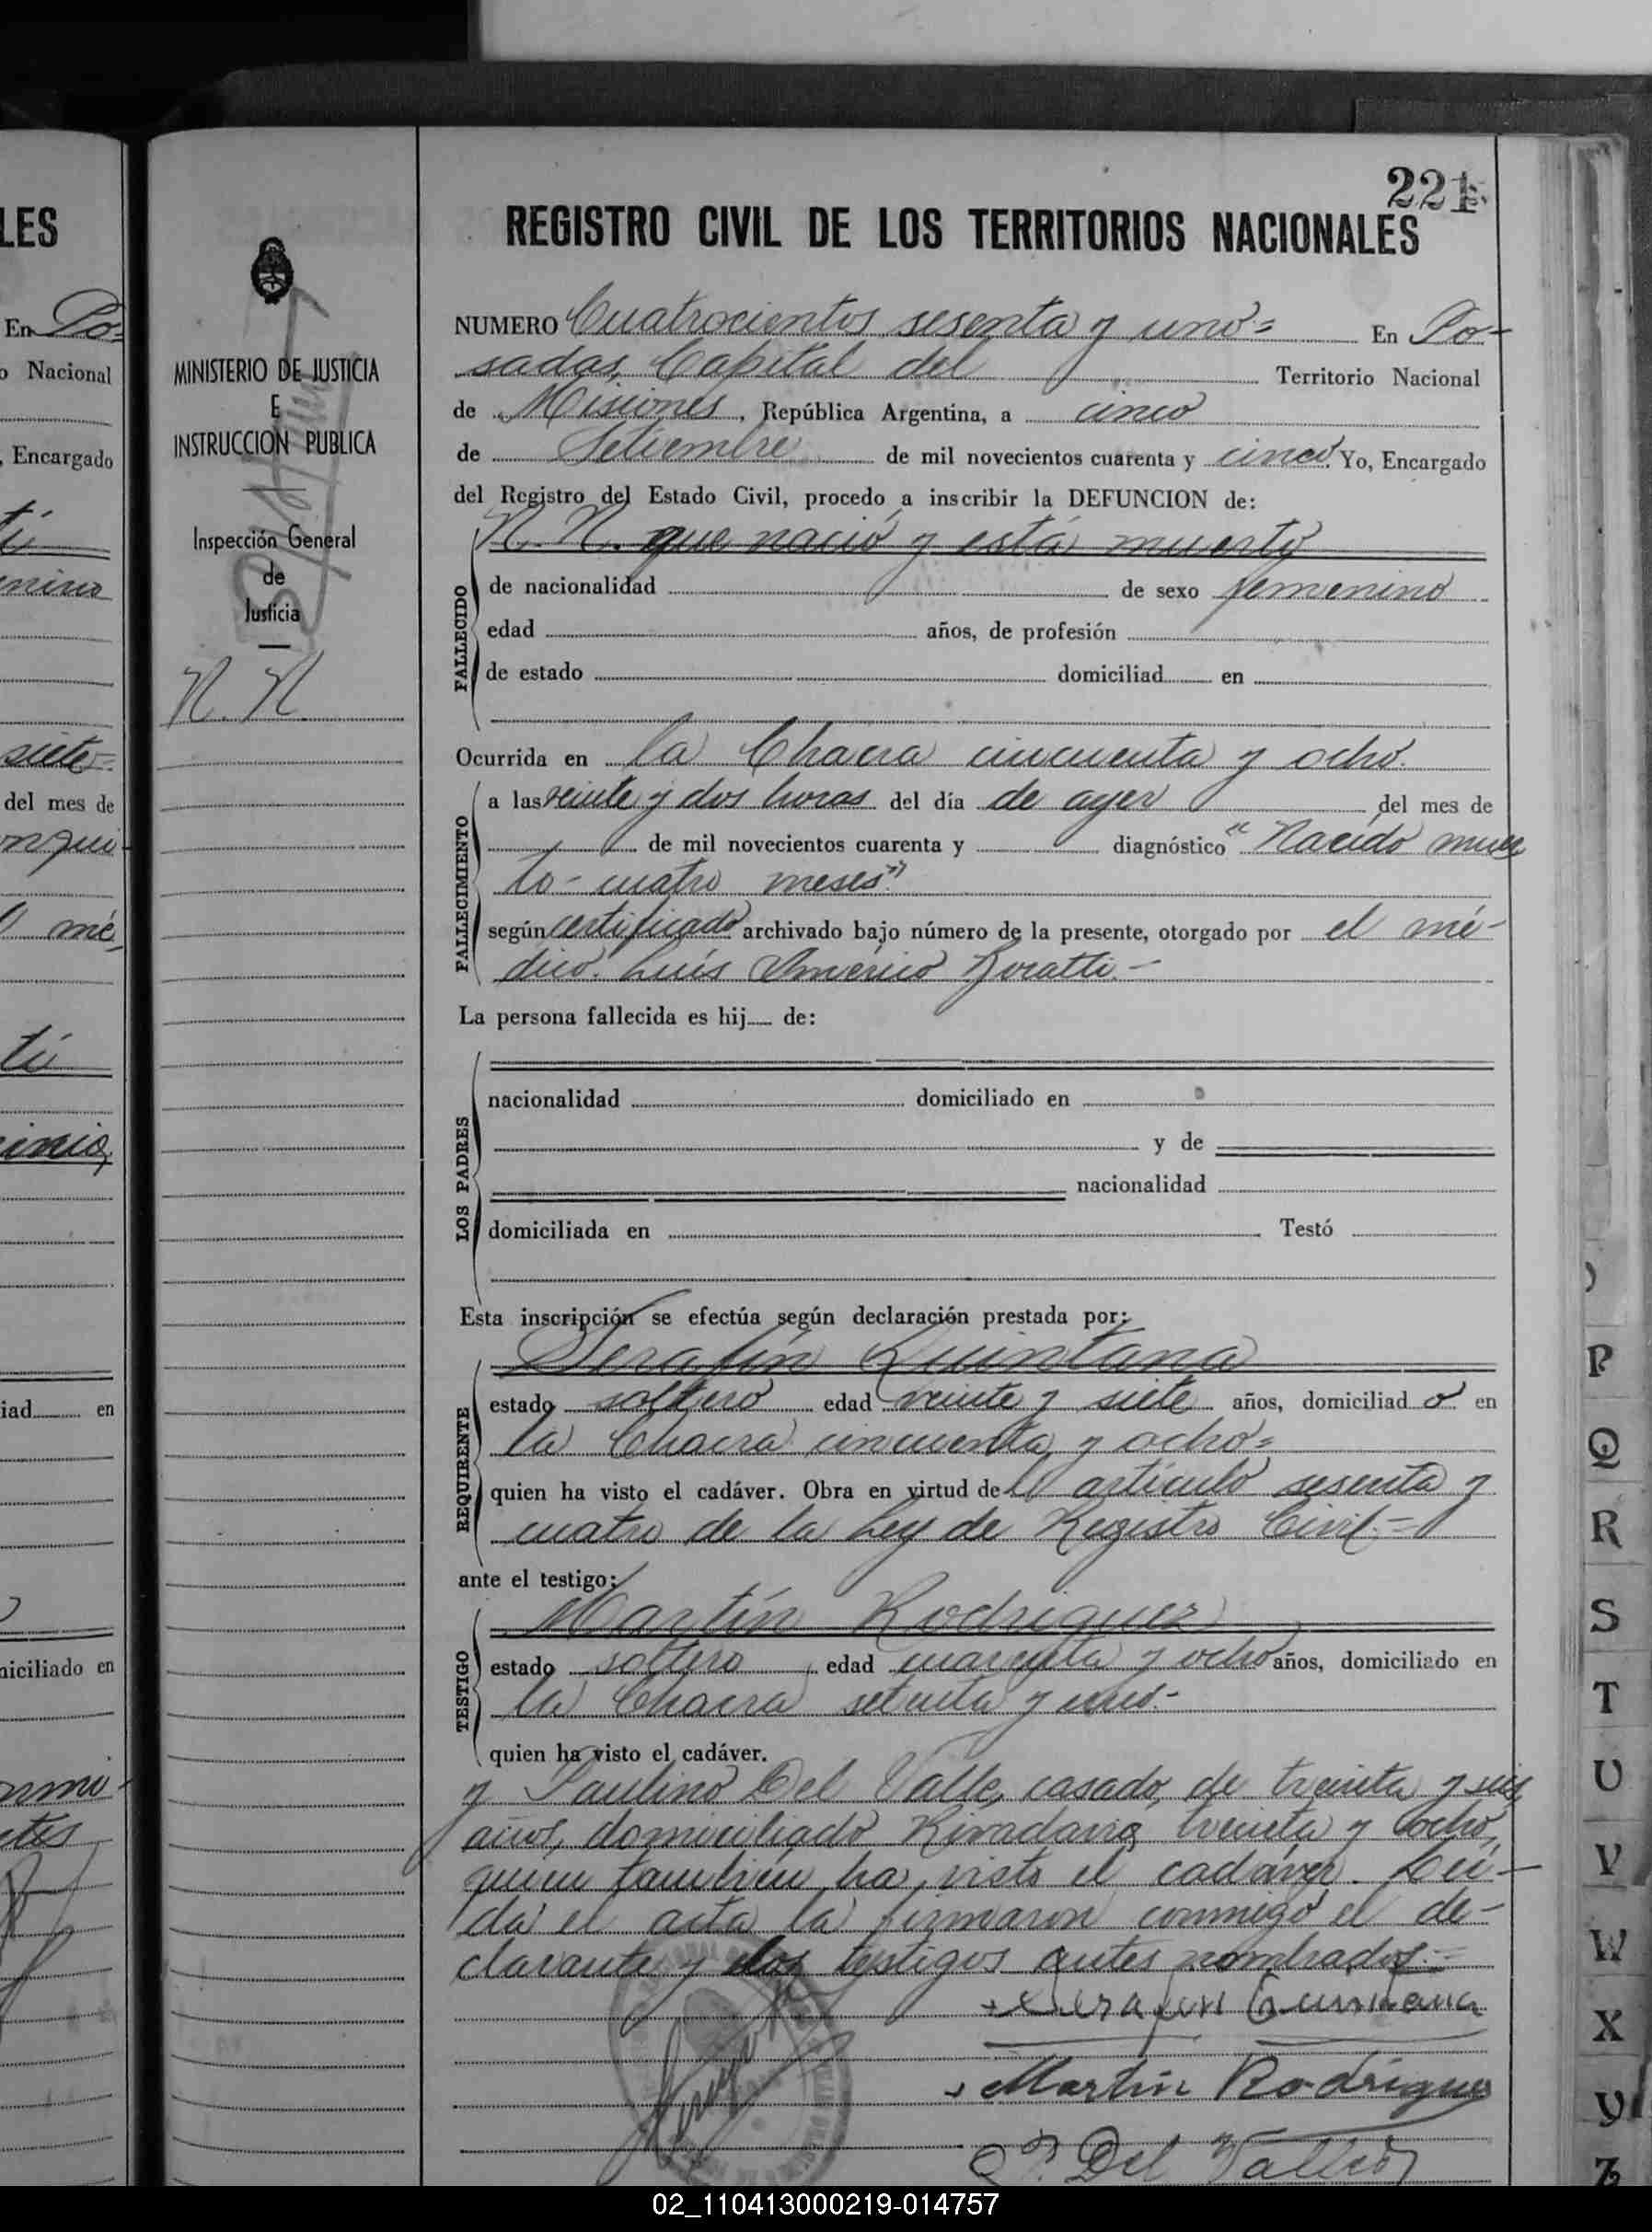 221
REGISTRO CIVIL DE LOS TERRITORIOS NACIONALES
NUMERO Cuatrocientos sesenta y uno= En Po-
sadas, Capital del Territorio Nacional
de Misiones, República Argentina, a cinco
de Setiembre de mil novecientos cuarenta y cinco. Yo, Encargado
del Registro del Estado Civil, procedo a inscribir la DEFUNCION de:
N. N. que nació y está muerto
FALLECIDO
de nacionalidad de sexo femenino
edad años, de profesión
de estado domiciliad en
Ocurrida en la Chacra cincuenta y ocho.
FALLECIMIENTO
a las veinte y dos horas del día de ayer del mes de
de mil novecientos cuarenta y diagnóstico "Nacido muer
to- cuatro meses"
según certificado archivado bajo número de la presente, otorgado por el mé-
dico. Luis Américo
La persona fallecida es hij de:
LOS PADRES
nacionalidad domiciliado en
y de
nacionalidad
domiciliada en Testó
Esta inscripción se efectúa según declaración prestada por:
Serafín Quintana
REQUIRENTE
estado soltero edad veinte y siete años, domiciliad o en
la Chacra cincuenta y ocho=
quien ha visto el cadáver. Obra en virtud de l artículo sesenta y
cuatro de la Ley de Registro Civil.=
ante el testigo:
Martín Rodriguez
TESTIGO
estado soltero, edad cuarenta y ocho años, domiciliado en
la Chacra setenta y uno.-
quien ha visto el cadáver.
y Paulino Del Valle, casado, de treinta y seis
años, domiciliado Rivadavia treinta y ocho,
quien también ha visto el cadáver. Leí-
da el acta la firmaron conmigo el de-
clarante y los testigos antes nombrados.=
Serafin Quintana
Martin Rodriguez
P. Del Valle
MINISTERIO DE JUSTICIA
E
INSTRUCCION PUBLICA
Inspección General
de
Justicia
N. N.
LES
En Po=
o Nacional
, Encargado
tí
siete=
del mes de
mé,
tí
iad en
niciliado en
P
Q
R
S
T
U
V
W
X
Y
Z
02_110413000219-014757